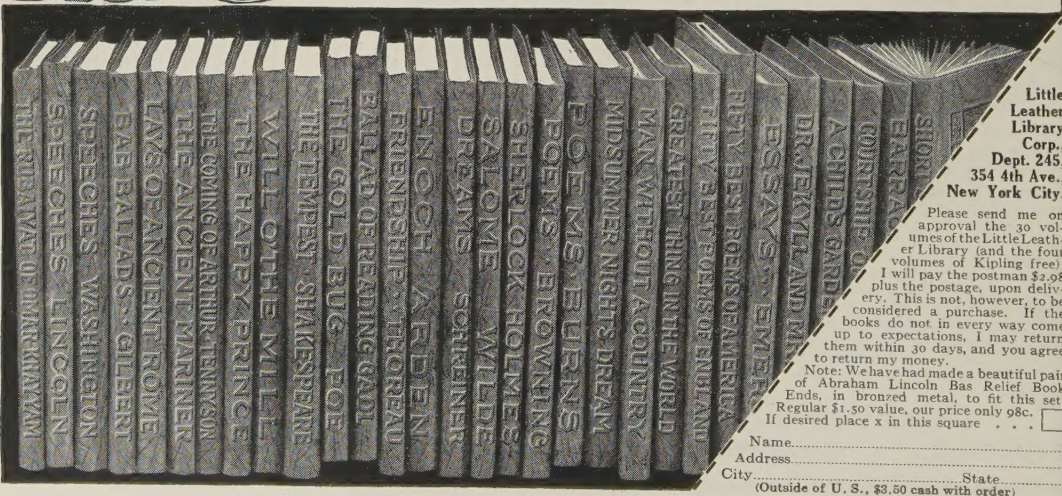 THE RUBAIYAT OF OMAR KHAYYAM
SPEECHES LINCOLN
SPEECHES WASHINGTON
BAB BALLADS · GILBERT
LAYS OF ANCIENT ROME
THE ANCIENT MARINER
THE COMING OF ARTHUR TENNYSON
THE HAPPY PRINCE
WILL O' THE MILL
THE TEMPEST SHAKESPEARE
THE GOLD BUG · POE
BALLAD OF READING GAOL
FRIENDSHIP · THOREAU
ENOCH ARDEN
DREAMS SCHREINER
SALOME WILDE
SHERLOCK HOLMES
POEMS · BROWNING
POEMS BURNS
MIDSUMMER NIGHT'S DREAM
MAN WITHOUT A COUNTRY
GREATEST THING IN THE WORLD
FIFTY BEST POEMS OF ENGLAND
FIFTY BEST POEMS OF AMERICA
ESSAYS · EMER
DR. JEKYLL AND M
A CHILD'S GARDE
COURTSHIP O
BARRAC
SHOR
Little
Leather
Library
Corp.
Dept. 245
354 4th Ave.
New York City
Please send me on
approval the 30 vol-
umes of the Little Leath-
er Library (and the four
volumes of Kipling free)
I will pay the postman $2.98
plus the postage, upon deliv-
ery. This is not, however, to be
considered a purchase. If the
books do not in every way come
up to expectations, I may return
them within 30 days, and you agree
to return my money.
Note: We have had made a beautiful pair
of Abraham Lincoln Bas Relief Book
Ends, in bronzed metal, to fit this set
Regular $1.50 value, our price only 98c.
If desired place x in this square . . .
Name
Address
City State
(Outside of U. S., $3.50 cash with order)